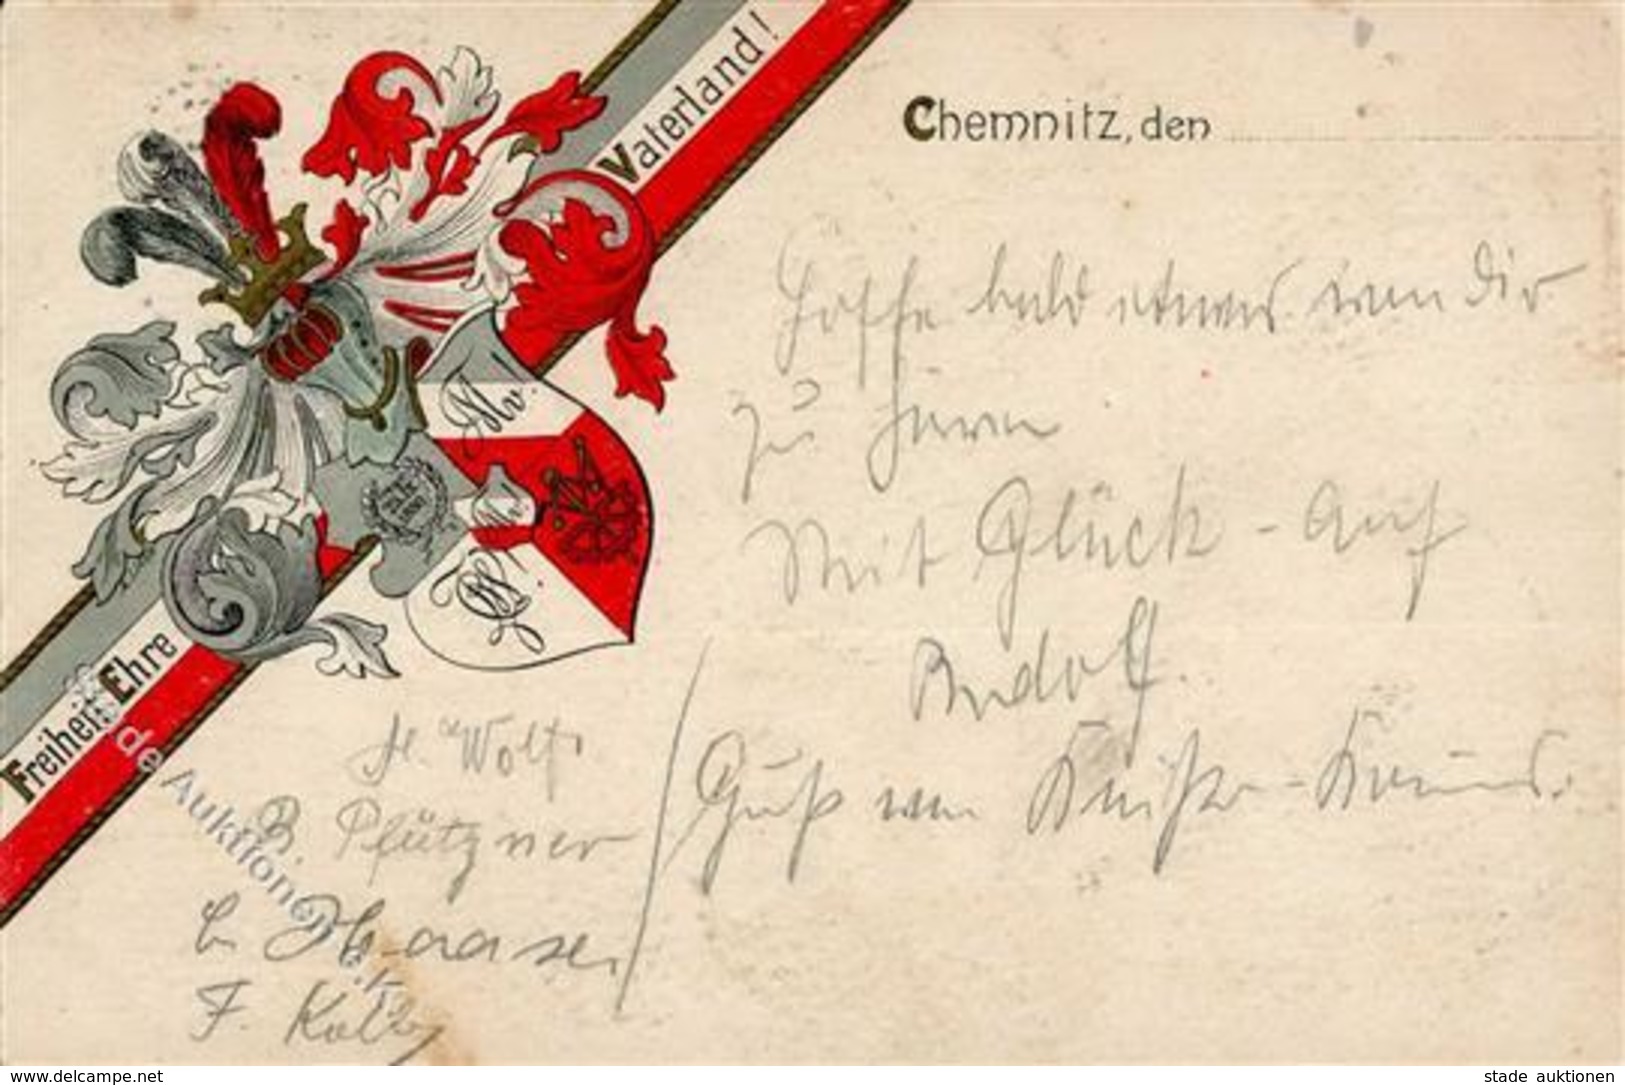 Chemnitz, den
Vaterland!
Freiheit Ehre
Hoffe bald etwas von Dir
zu hören
Mit Glück-Auf
Rudolf.
Gruß von
Wolf
B. Pfützner
Haase
F. Kolbe
Auktionen
www.delcampe.net
stade auktionen